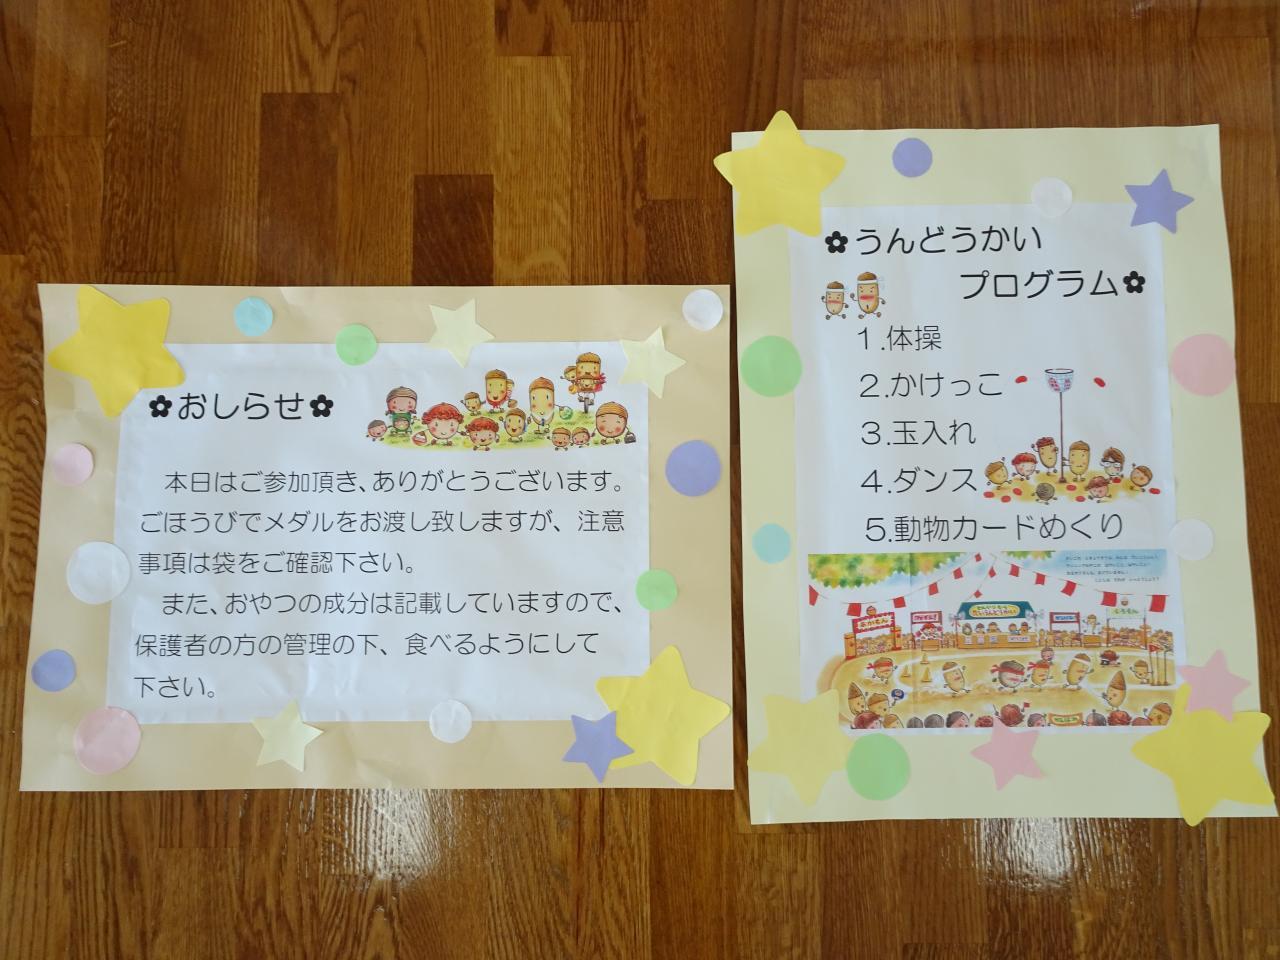 ✿おしらせ✿
本日はご参加頂き、ありがとうございます。
ごほうびでメダルをお渡し致しますが、注意
事項は袋をご確認下さい。
また、おやつの成分は記載していますので、
保護者の方の管理の下、食べるようにして
下さい。
✿うんどうかい
プログラム✿
1.体操
2.かけっこ
3.玉入れ
4.ダンス
5.動物カードめくり